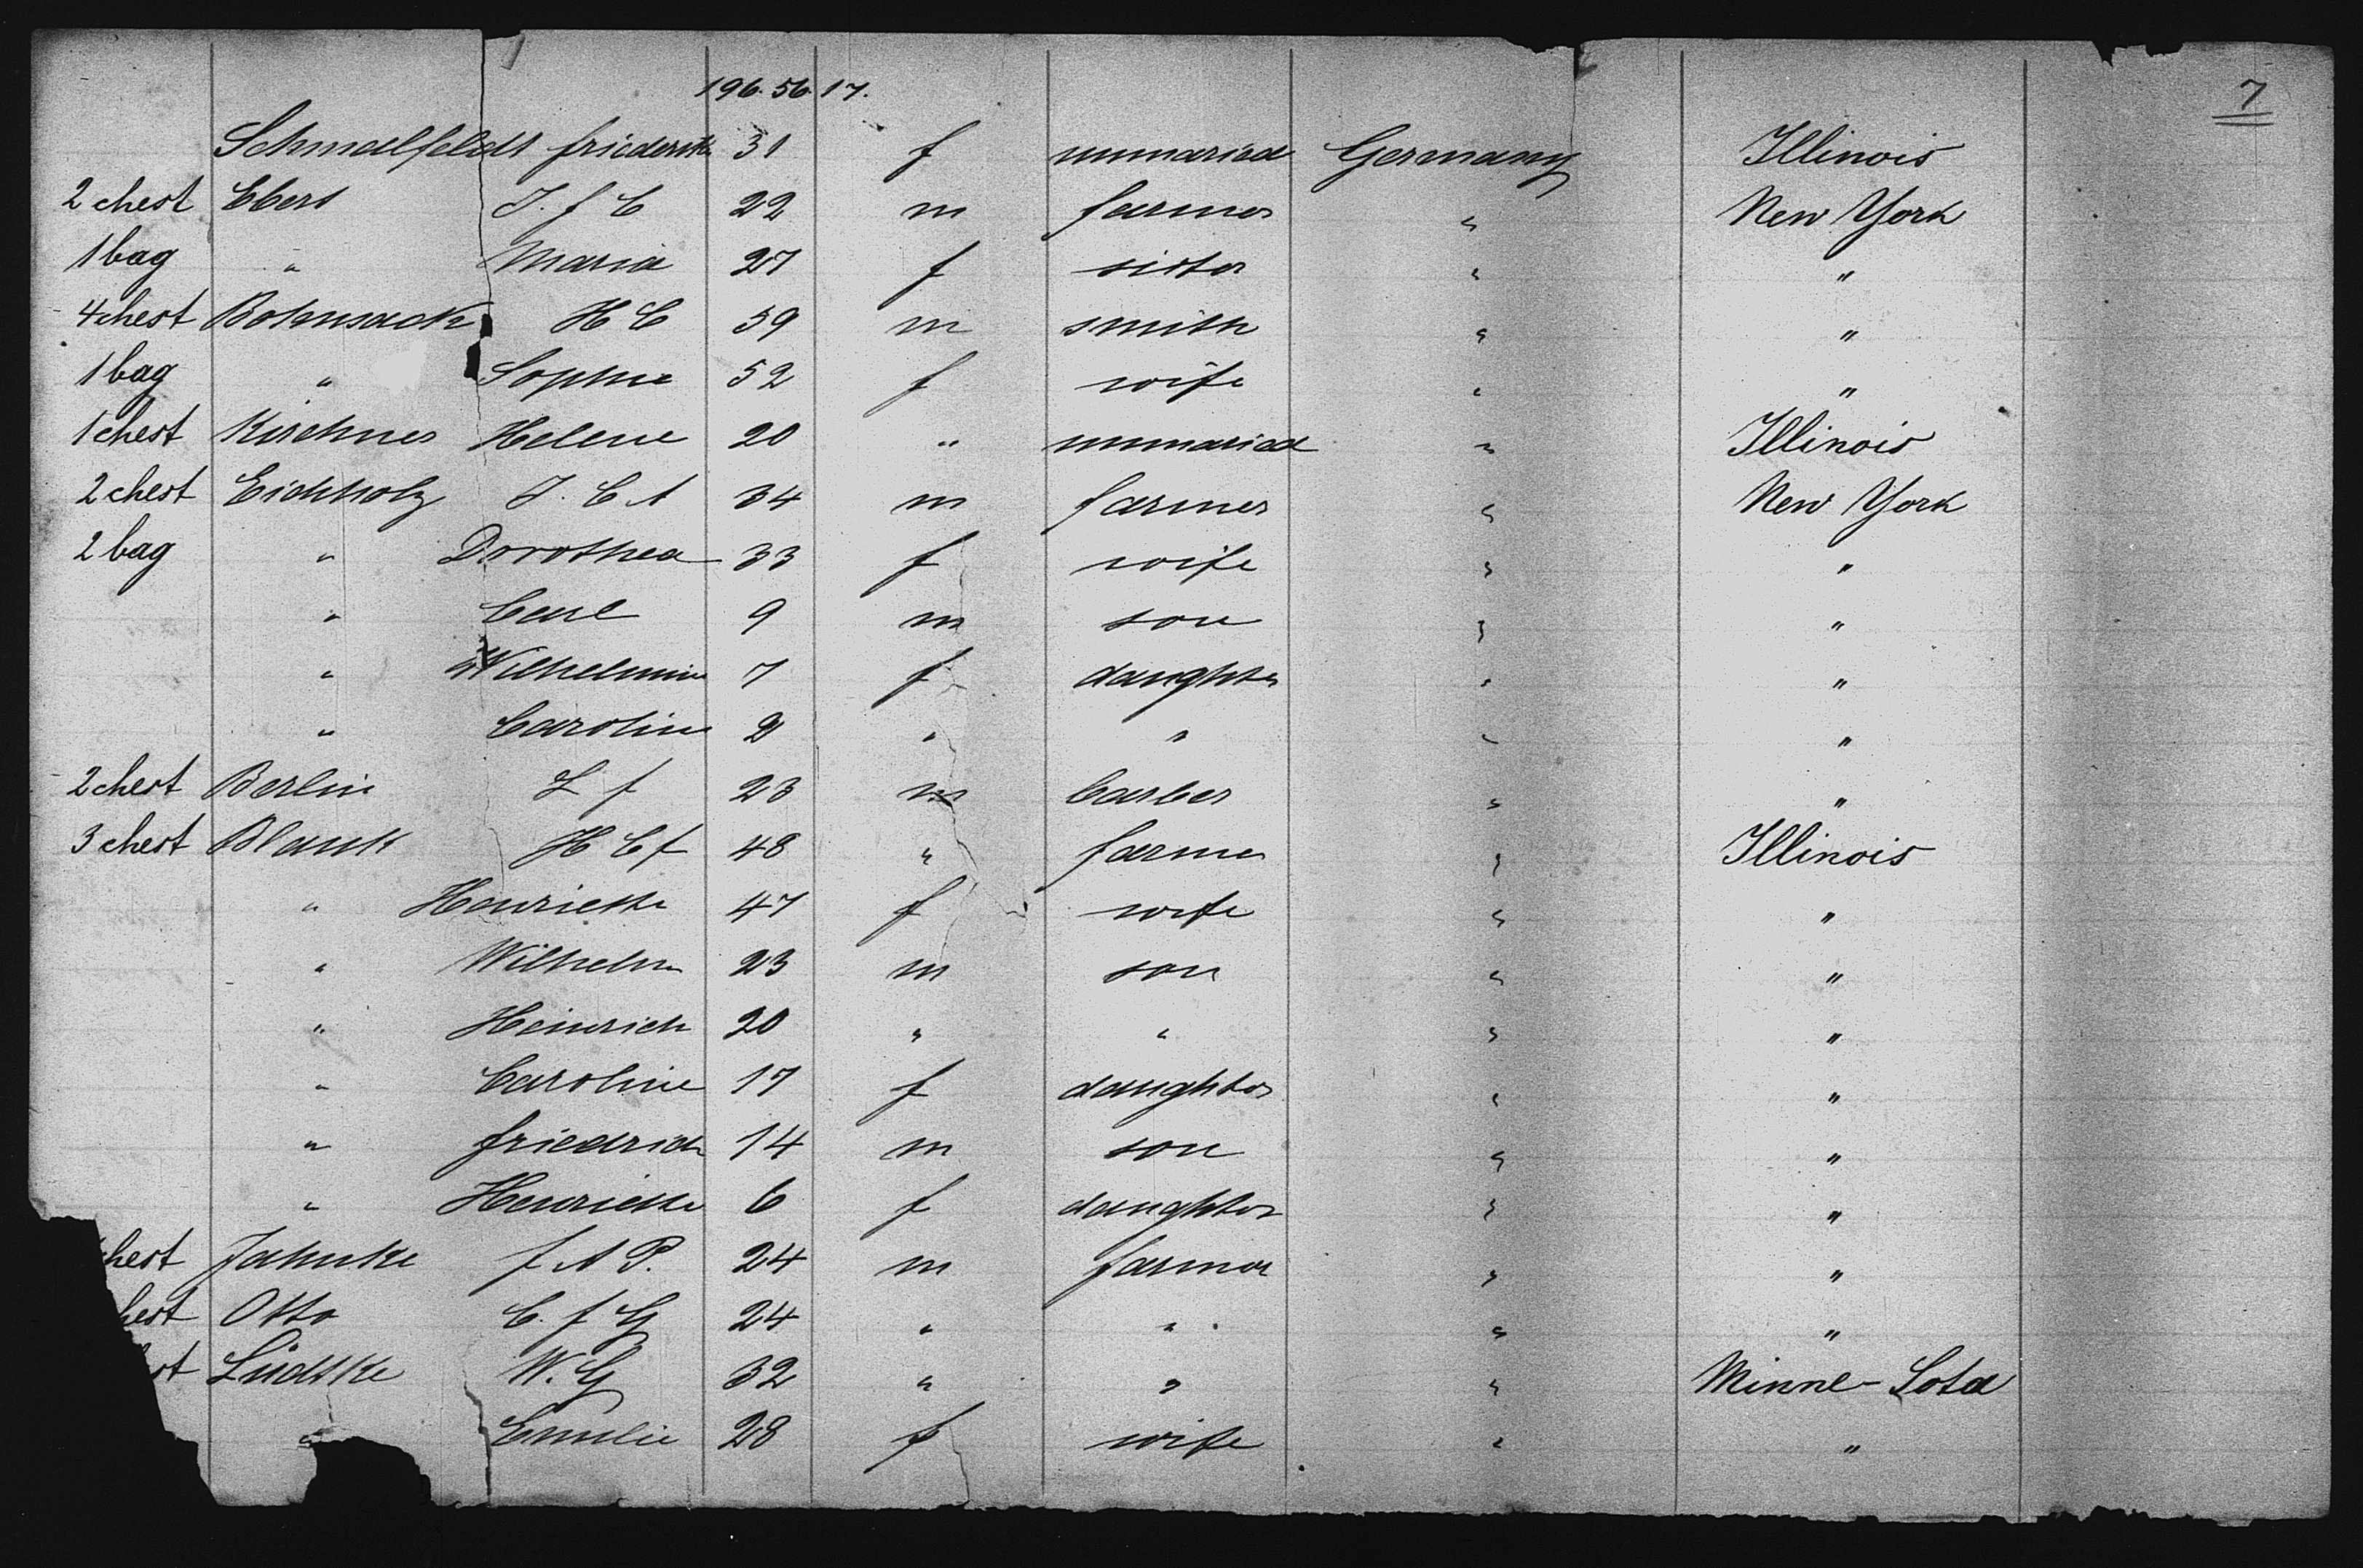 196. 56. 17.
7
Schmalfeldt friederike 31 f unmaried Germany Illinois
2 chest Ebert J. f C 22 m farmer " New York
1 bag " Maria 27 f sister " "
4 chest Bohnsack H C 59 m smith " "
1 bag " Sophie 52 f wife " "
1 chest Kirchner Helene 20 " unmaried " Illinois
2 chest Eichholz J. C A 34 m farmer " New York
2 bag " Dorothea 33 f wife " "
" Carl 9 m son " "
" Wilhelmine 7 f daughter " "
" Caroline 2 " " " "
2 chest Berlin L f 23 m barber " "
3 chest Blank H C f 48 " farmer " Illinois
" Henriette 47 f wife " "
" Wilhelm 23 m son " "
" Heinrich 20 " " " "
" Caroline 17 f daughter " "
" friedrich 14 m son " "
" Henriette 6 f daughter " "
chest Jahnke f A P. 24 m farmer " "
hest Otto C. f G 24 " " " "
st Lüdtke W. G 32 " " " Minne-Sota
" Emilie 28 f wife " "